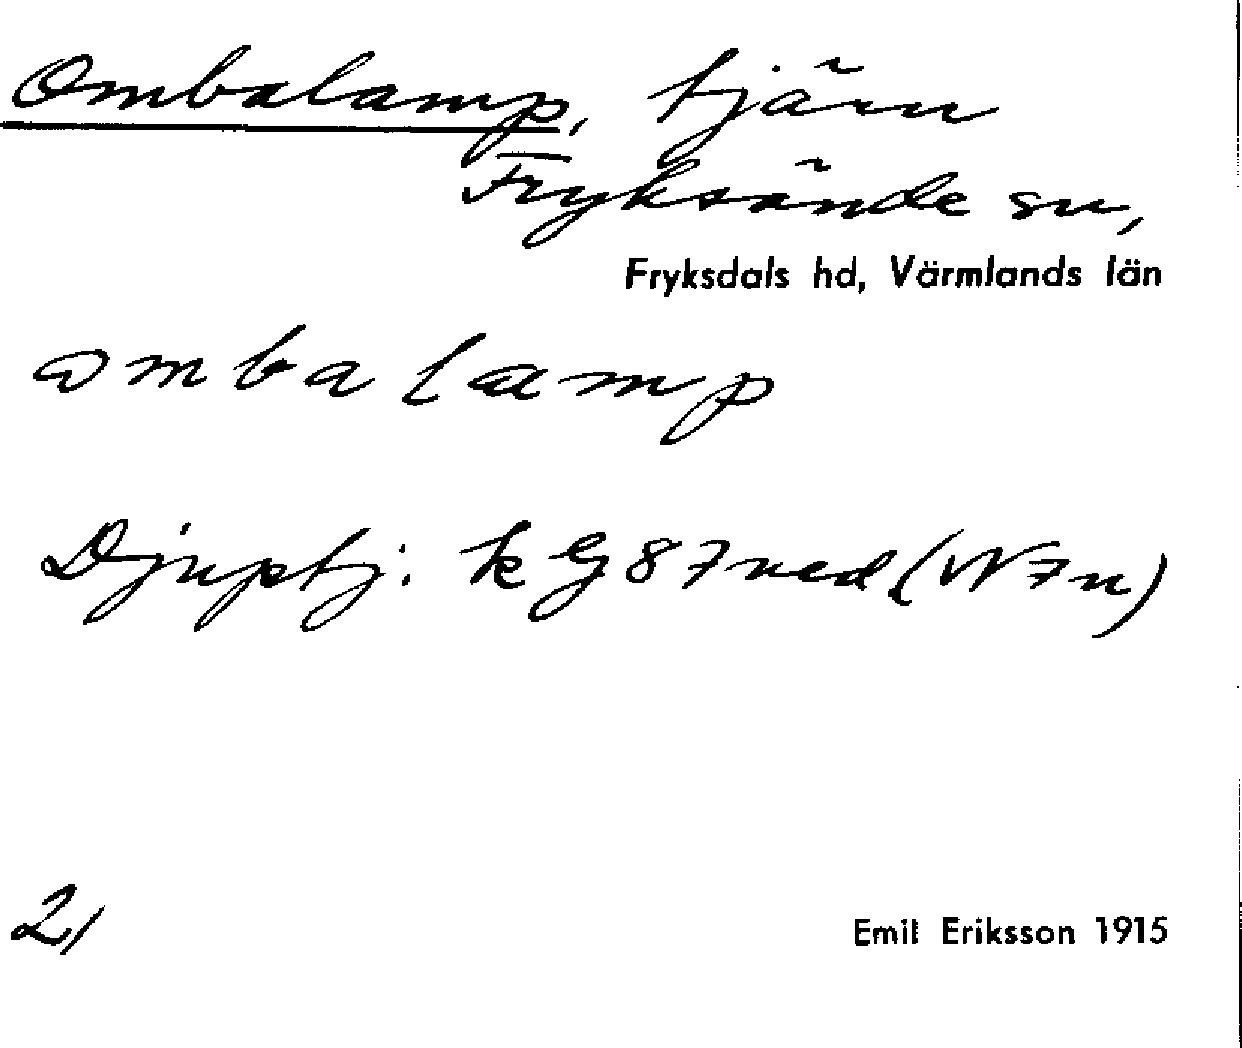 Ombalamp, tjärn
Fryksände sn,
Fryksdals hd, Värmlands län
ombalamp
Djuptj: kG87ned(W7n)
21
Emil Eriksson 1915